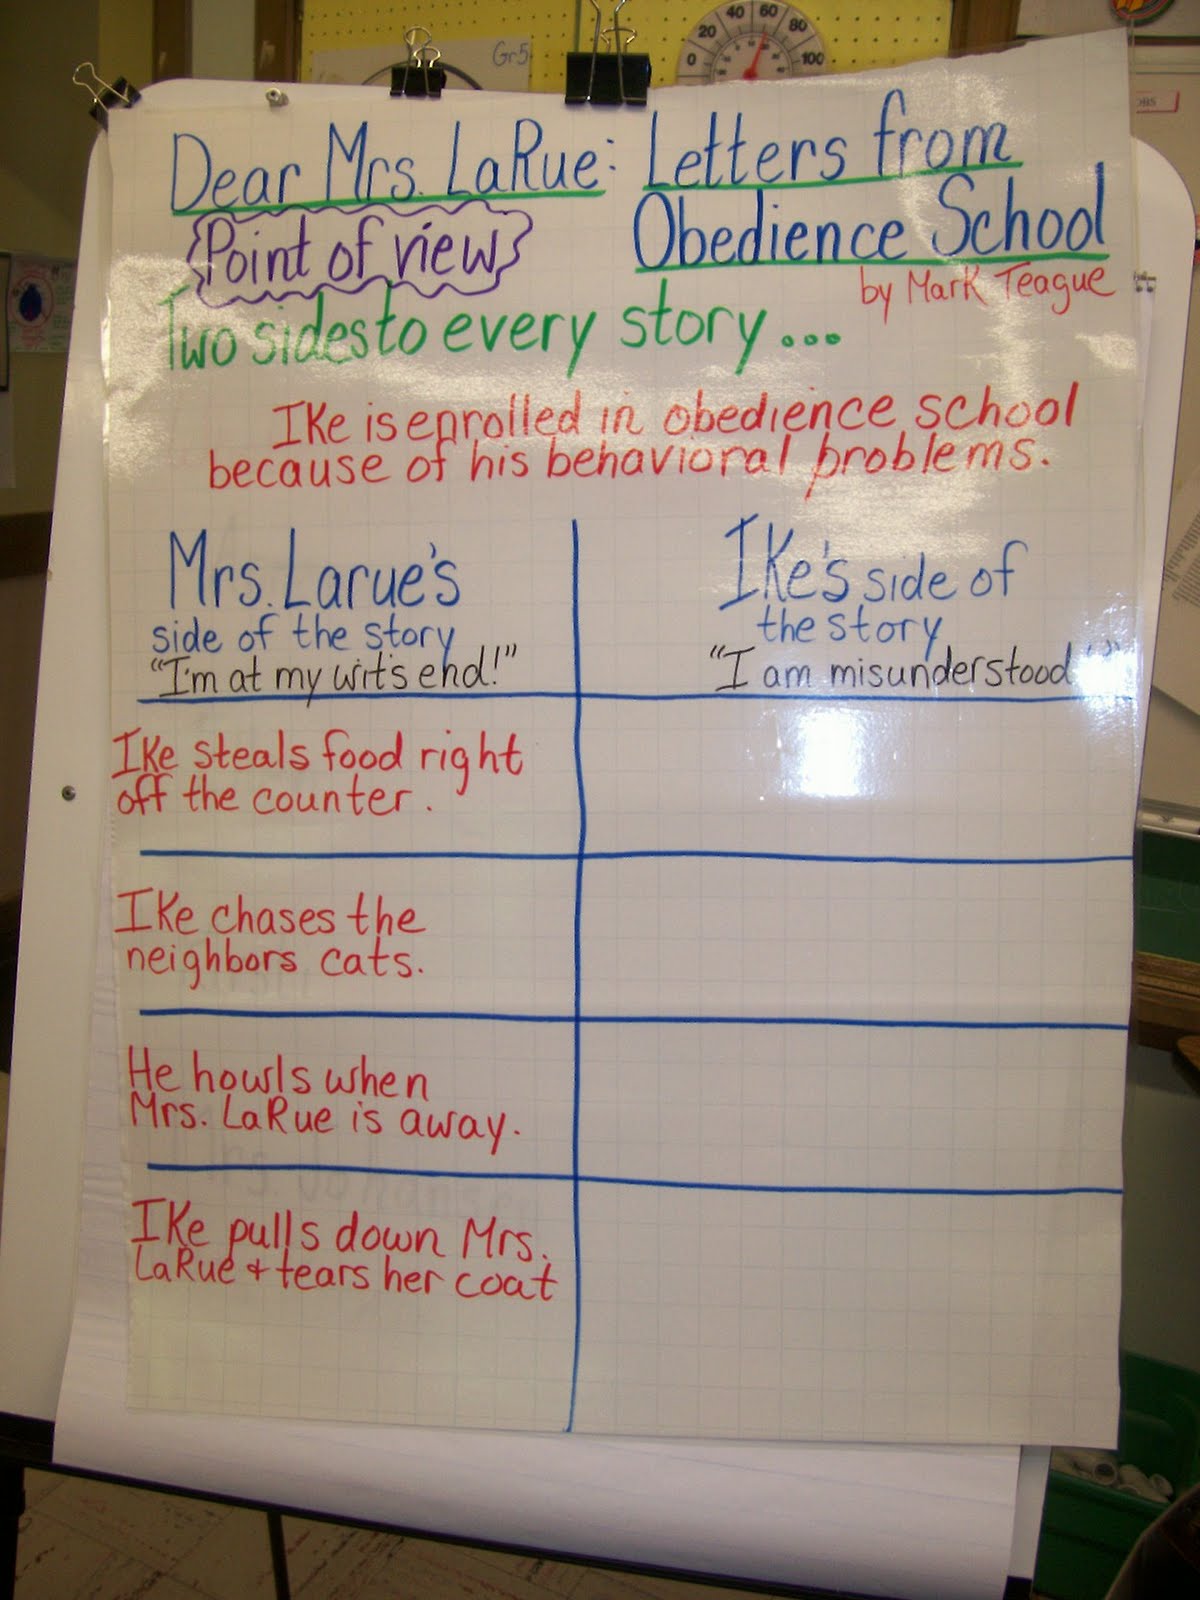 Gr5
0
20
40
60
80
100
Dear Mrs. LaRue: Letters from
Obedience School
Point of view
by Mark Teague
Two sides to every story...
IKe is enrolled in obedience school
because of his behavioral problems.
Mrs. Larue's
side of the story
"I'm at my wit's end!"
IKe's side of
the story
"I am misunderstood!"
IKe steals food right
off the counter.
IKe chases the
neighbors cats.
He howls when
Mrs. LaRue is away.
IKe pulls down Mrs.
LaRue & tears her coat